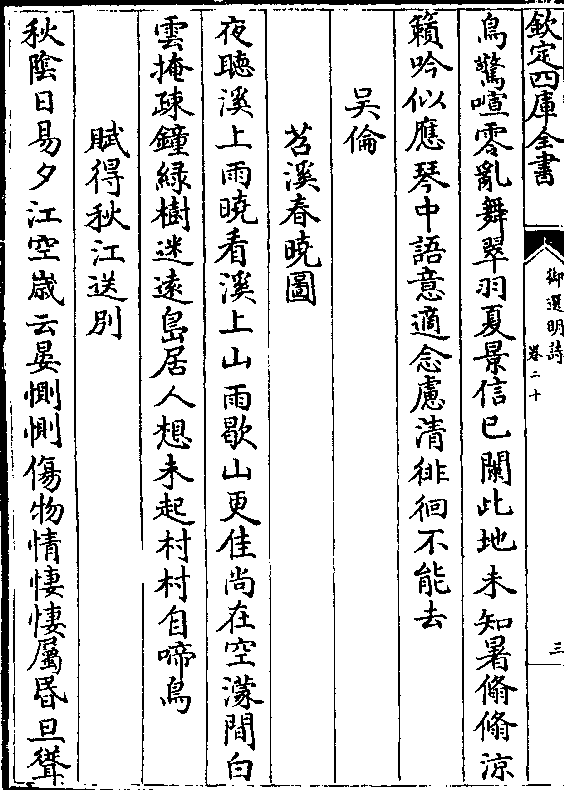 欽定四庫全書
御選明詩
卷二十
三
鳥驚喧零亂舞翠羽夏景信已闌此地未知暑翛翛涼
籟吟似應琴中語意適念慮清徘徊不能去
吴倫
苕溪春曉圖
夜聽溪上雨曉看溪上山雨歇山更佳尚在空濛間白
雲掩疎鐘綠樹迷遠島居人想未起村村自啼鳥
賦得秋江送別
秋陰日易夕江空歲云晏惻惻傷物情悽悽屬昏旦聳